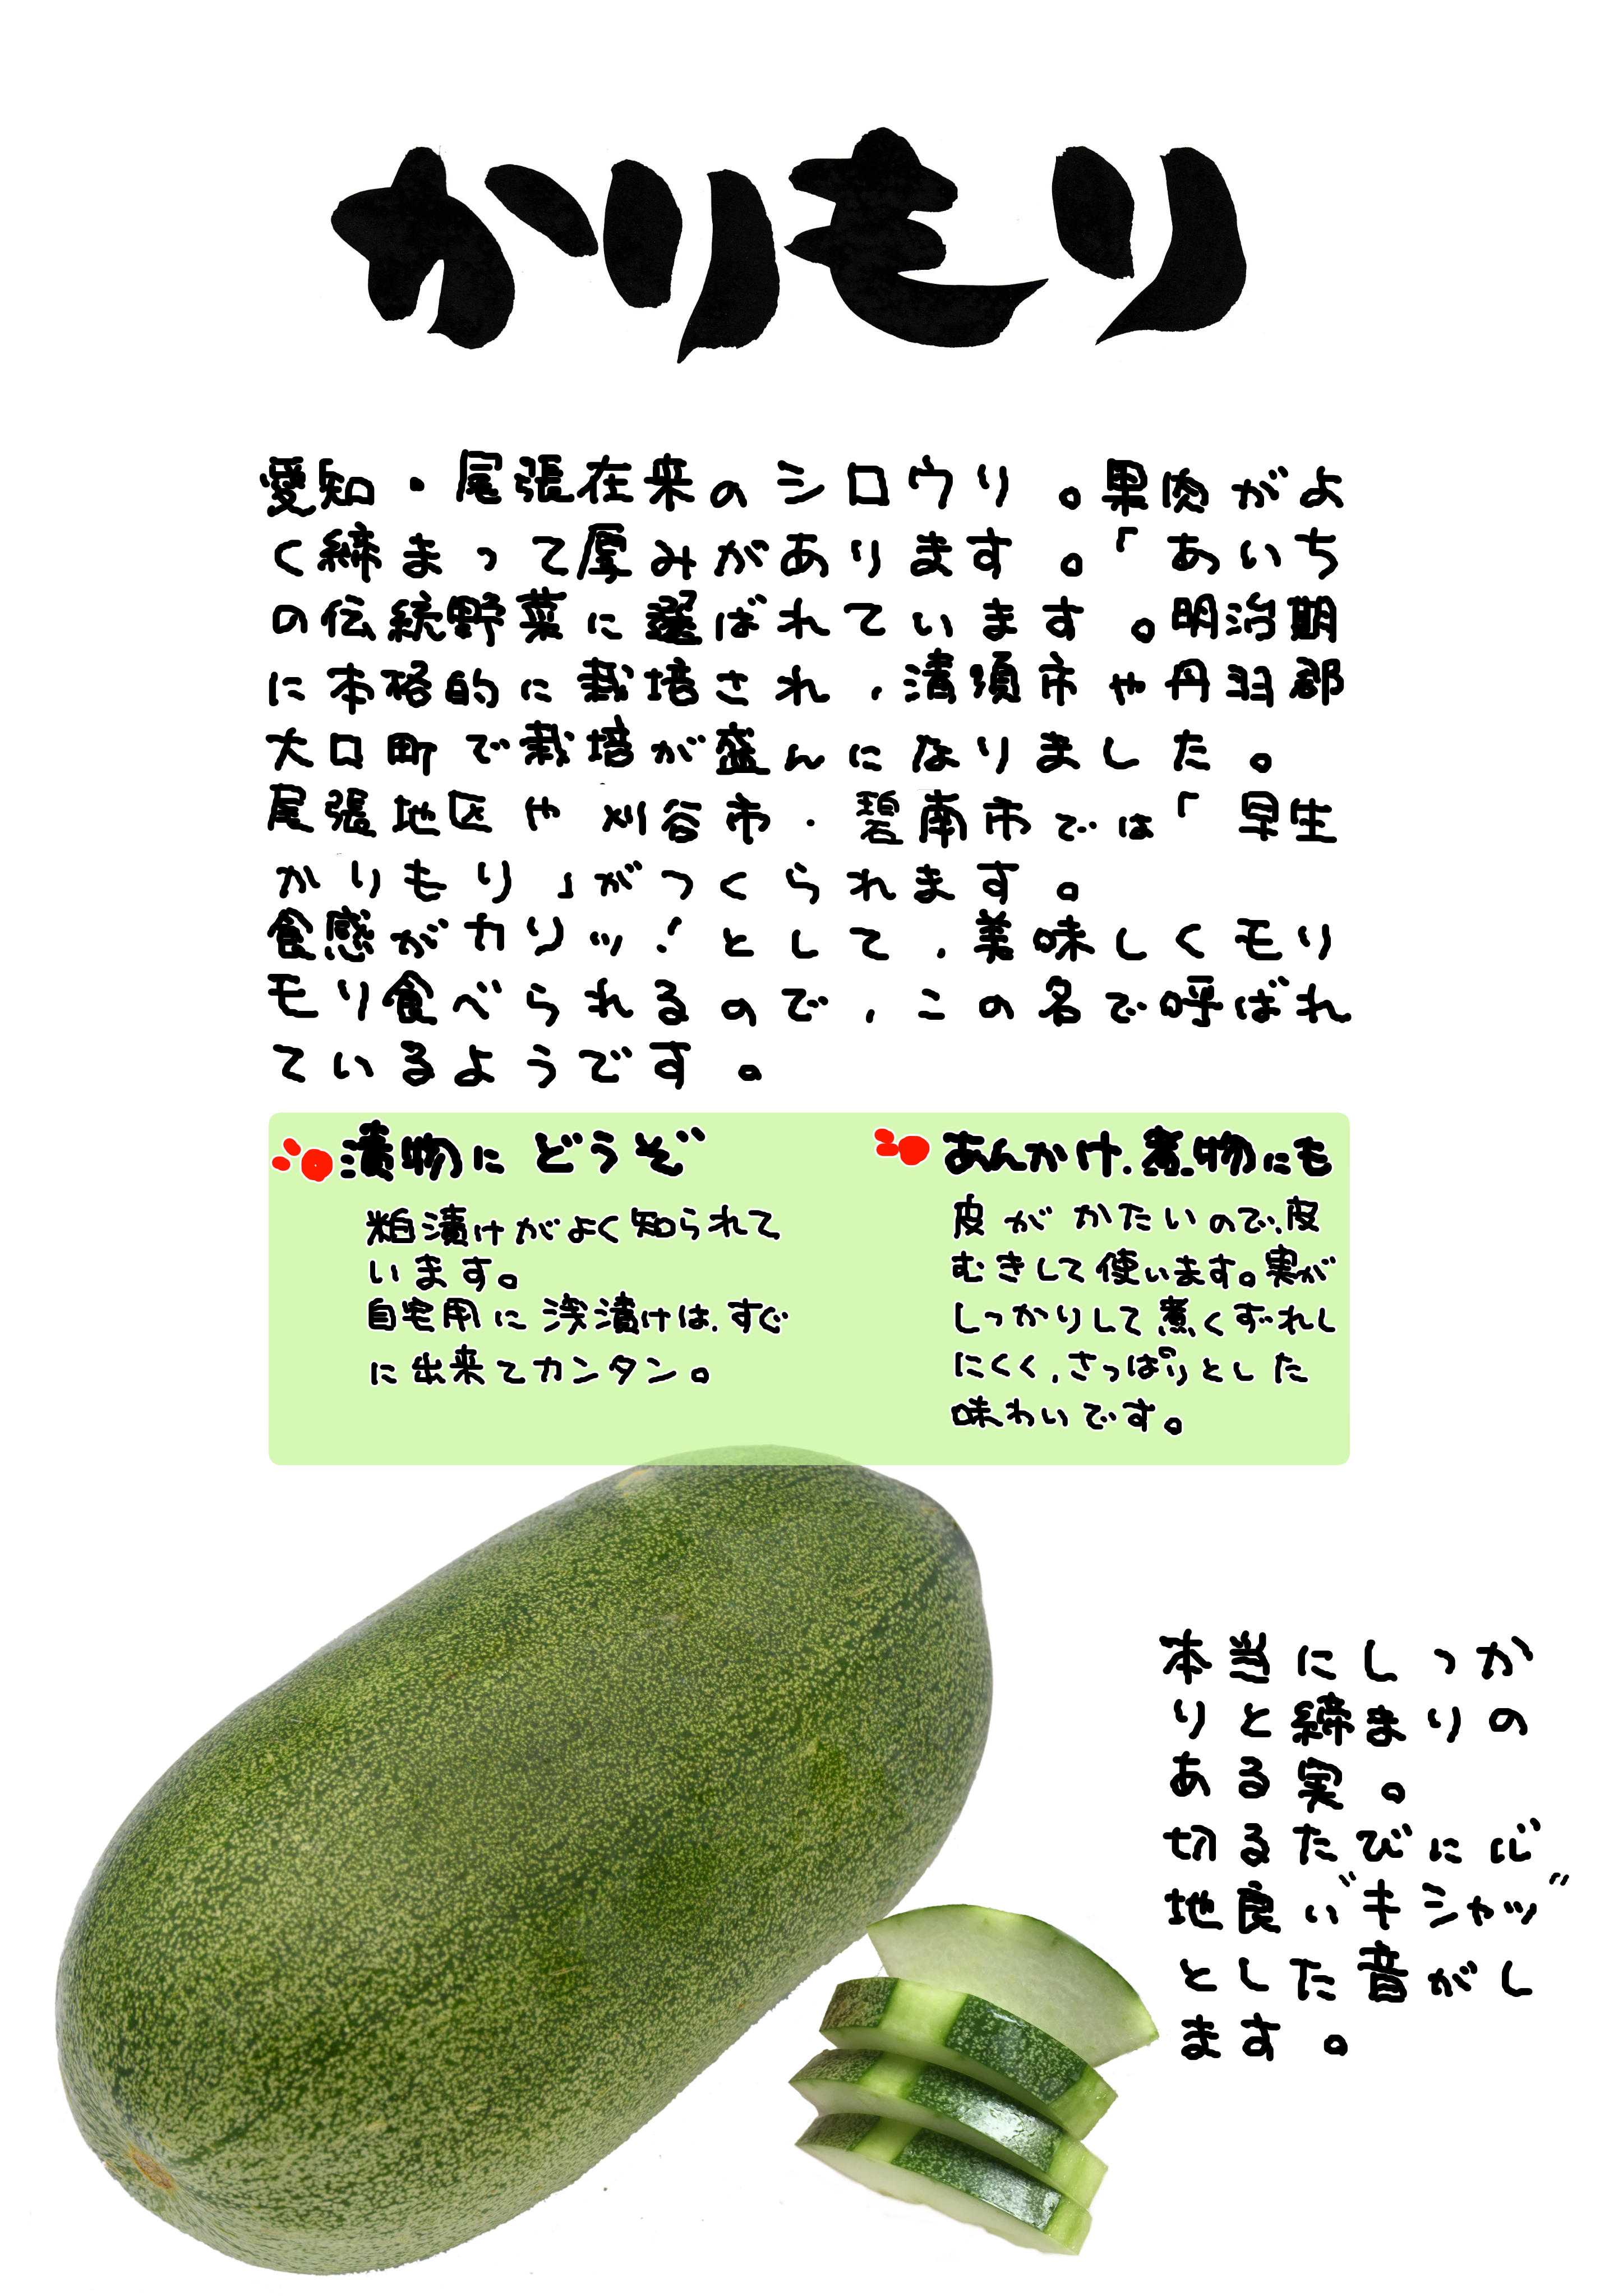 かりもり
愛知・尾張在来のシロウリ。果肉がよ
く締まって厚みがあります。「あいち
の伝統野菜に選ばれています。明治期
に本格的に栽培され、清須市や丹羽郡
大口町で栽培が盛んになりました。
尾張地区や刈谷市・碧南市では「早生
かりもり」がつくられます。
食感がカリッ!として、美味しくモリ
モリ食べられるので、この名で呼ばれ
ているようです。
漬物にどうぞ
粕漬けがよく知られて
います。
自宅用に浅漬けは、すぐ
に出来てカンタン。
あんかけ、煮物にも
皮がかたいので、皮
むきして使います。実が
しっかりして煮くずれし
にくく、さっぱりとした
味わいです。
本当にしっか
りと締まりの
ある実。
切るたびに心
地良い"キシャッ"
とした音がし
ます。